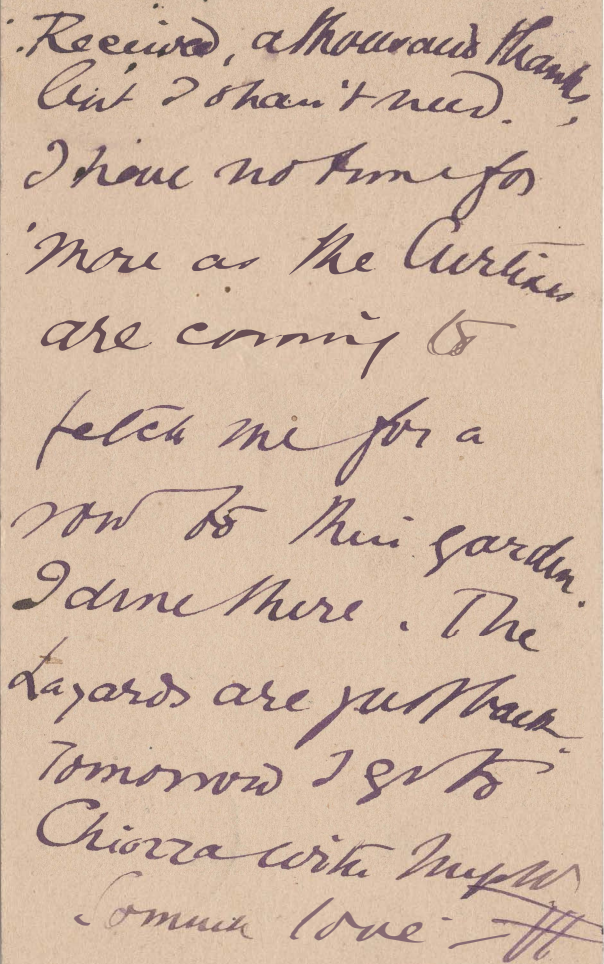 Received, a thousand thanks,
but I shan't need.
I have no time for
more as the Curtises
are coming to
fetch me for a
row to their garden.
I dine there. The
Layards are just back.
Tomorrow I go to
Chiozza with
So much love